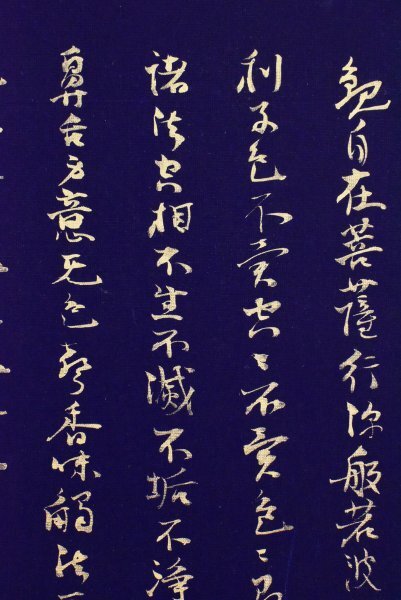 観自在菩薩行深般若波
利子色不異空々不異色々即
諸法空相不生不滅不垢不浄
鼻舌身意无色声香味触法